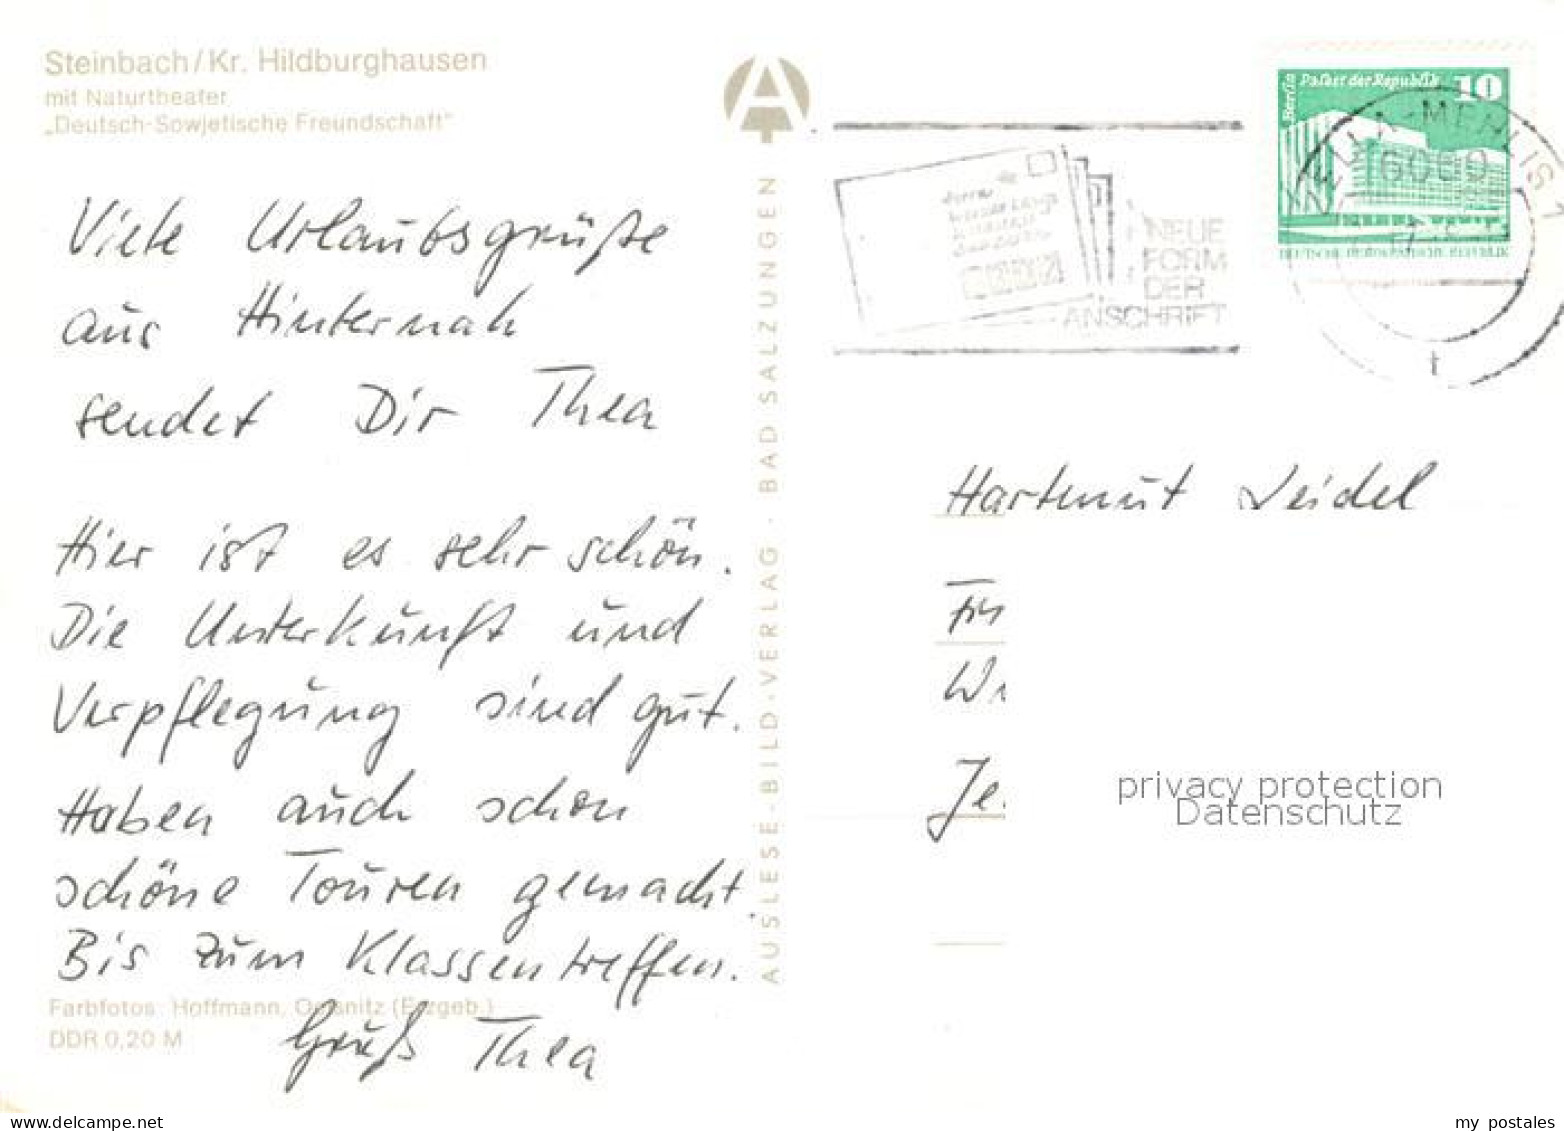 Steinbach/Kr. Hildburghausen
mit Naturtheater
„Deutsch-Sowjetische Freundschaft"
Viele Urlaubsgrüße
aus Hinternah
sendet Dir Thea
Hier ist es sehr schön.
Die Unterkunft und
Verpflegung sind gut.
Haben auch schon
schöne Touren gemacht.
Bis zum Klassentreffen.
Gruß Thea
Farbfotos: Hoffmann, Oelsnitz (Erzgeb.)
DDR 0,20 M
AUSLESE-BILD-VERLAG · BAD SALZUNGEN
NEUE
FORM
DER
ANSCHRIFT
Berlin Palast der Republik 10
DEUTSCHE DEMOKRATISCHE REPUBLIK
ZELLA-MEHLIS 1
6060
t
Hartmut Seidel
Je.
privacy protection
Datenschutz
delcampe.net
my_postales